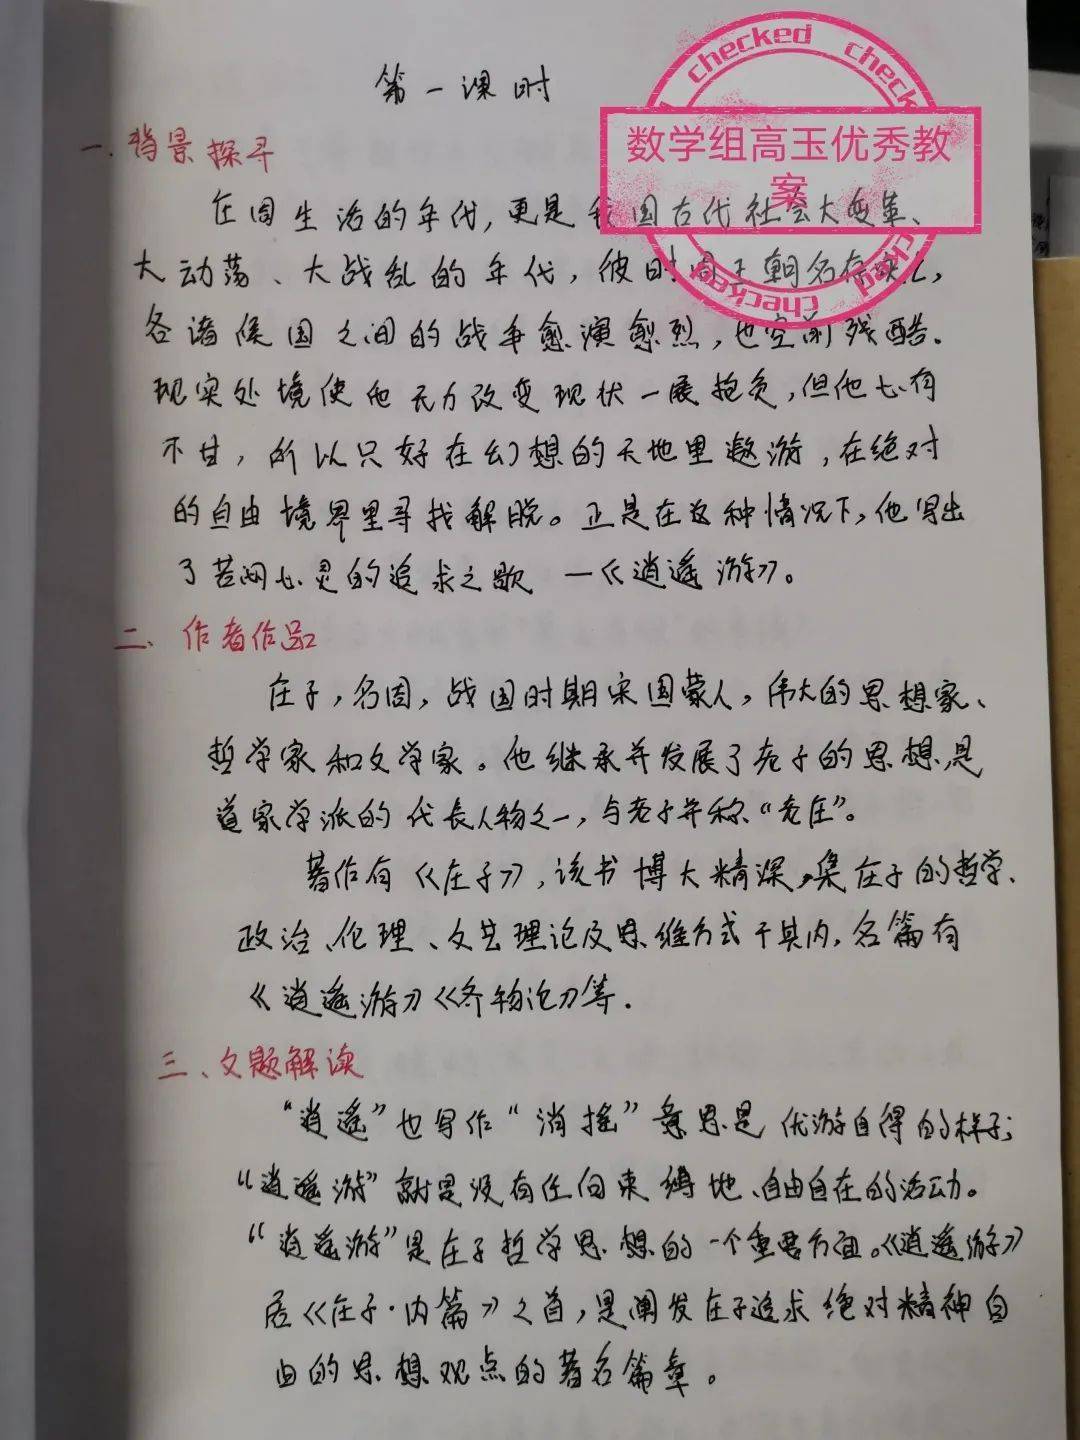 第一课时
checked checked
数学组高玉优秀教
案
checked
checked
一.背景探寻
庄周生活的年代,更是我国古代社会大变革、
大动荡、大战乱的年代,彼时周王朝名存实亡,
各诸侯国之间的战争愈演愈烈,也空前残酷.
现实处境使他无力改变现状一展抱负,但他心有
不甘,所以只好在幻想的天地里遨游,在绝对
的自由境界里寻找解脱。正是在这种情况下,他写出
了苦闷心灵的追求之歌—《逍遥游》。
二、作者作品
庄子,名周,战国时期宋国蒙人,伟大的思想家、
哲学家和文学家。他继承并发展了老子的思想,是
道家学派的代表人物之一,与老子并称“老庄”。
著作有《庄子》,该书博大精深,集庄子的哲学、
政治、伦理、文艺理论及思维方式于其内,名篇有
《逍遥游》《齐物论》等.
三、文题解读
“逍遥”也写作“消摇”意思是优游自得的样子;
“逍遥游”就是没有任何束缚地、自由自在的活动。
“逍遥游”是庄子哲学思想的一个重要方面。《逍遥游》
居《庄子·内篇》之首,是阐发庄子追求绝对精神自
由的思想观点的著名篇章。